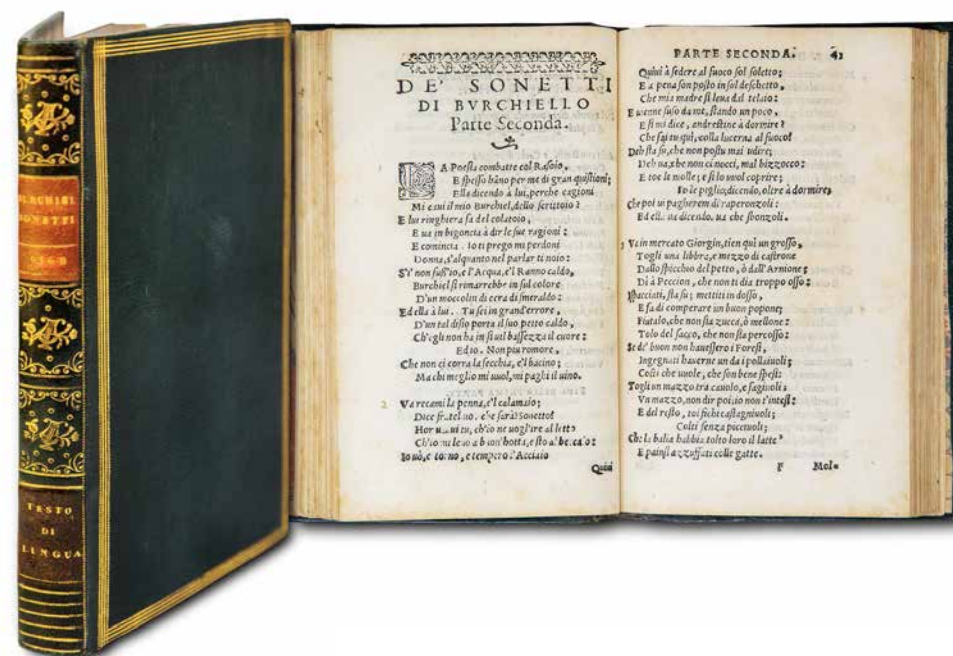 BURCHIEL
SONETTI
1568
TESTO
DI
LINGUA
DE' SONETTI
DI BVRCHIELLO
Parte Seconda.
LA Poesia combatte col Rasoio,
E spesso hãno per me di gran quistioni;
Ella dicendo à lui, perche cagioni
Mi caui il mio Burchiel, dello scrittoio?
E lui ringhiera fa del colatoio,
E ua in bigoncia à dir le sue ragioni:
E comincia. Io ti prego mi perdoni
Donna, s'alquanto nel parlar ti noio:
S'i' non fuss'io, e l'Acqua, e'l Ranno caldo,
Burchiel si rimarrebbe in sul colore
D'un moccolin di cera di smeraldo:
Ed ella à lui. Tu sei in grand'errore,
D'un tal disio porta il suo petto caldo,
Ch'egli non ha in si uil bassezza il cuore:
Ed io. Non piu romore,
Che non ci corra la secchia, e'l bacino;
Ma chi meglio mi uuol, mi paghi il uino.
2 Va recami la penna, e'l calamaio;
Dice fratel no. che sarà? Sonetto?
Hor tu, ch'io ne uogl'ire al letto
Ch'io mi leuo a buon'hotta, e sto a
Io uò, e torno, e tempero l'Acciaio
Quiui
PARTE SECONDA. 41
Quiui à sedere al fuoco sol soletto;
E a pena son posto in sol deschetto,
Che mia madre si leua dal telaio:
E uienne suso da me, stando un poco,
E si mi dice, andrestine à dormire?
Che fai tu quì, colla lucerna al fuoco?
Deh sta su, che non possu mai udire;
Deh ua, che non ci nocci, mal bizzocco:
E toe le molle; e si lo uuol coprire;
Io le piglio, dicendo, oltre à dormire,
Che poi ui pagherem di raperonzoli:
Ed ella ua dicendo. ua che sbonzoli.
3 Va in mercato Giorgin, tien quì un grosso,
Togli una libbra, e mezzo di castrone
Dallo spicchio del petto, ò dall'Arnione;
Dì à Peccion, che non ti dia troppo osso:
Ispacciati, sta su; mettiti in dosso,
E fa di comperare un buon popone;
Fiutalo, che non sia zucca, ò mellone:
Tolo del sacco, che non sia percosso:
Se de' buon non hauessero i Foresi,
Ingegnati hauerne un da i pollaiuoli;
Costi che uuole, che son bene spesi:
Togli un mazzo tra cauolo, e fagiuoli;
Vn mazzo, non dir poi, io non t'intesi:
E del resto, toi fichi castagniuoli;
Colti senza picciuoli;
Che la balia habbia tolto loro il latte
E painsi azzuffati colle gatte.
F Mol-